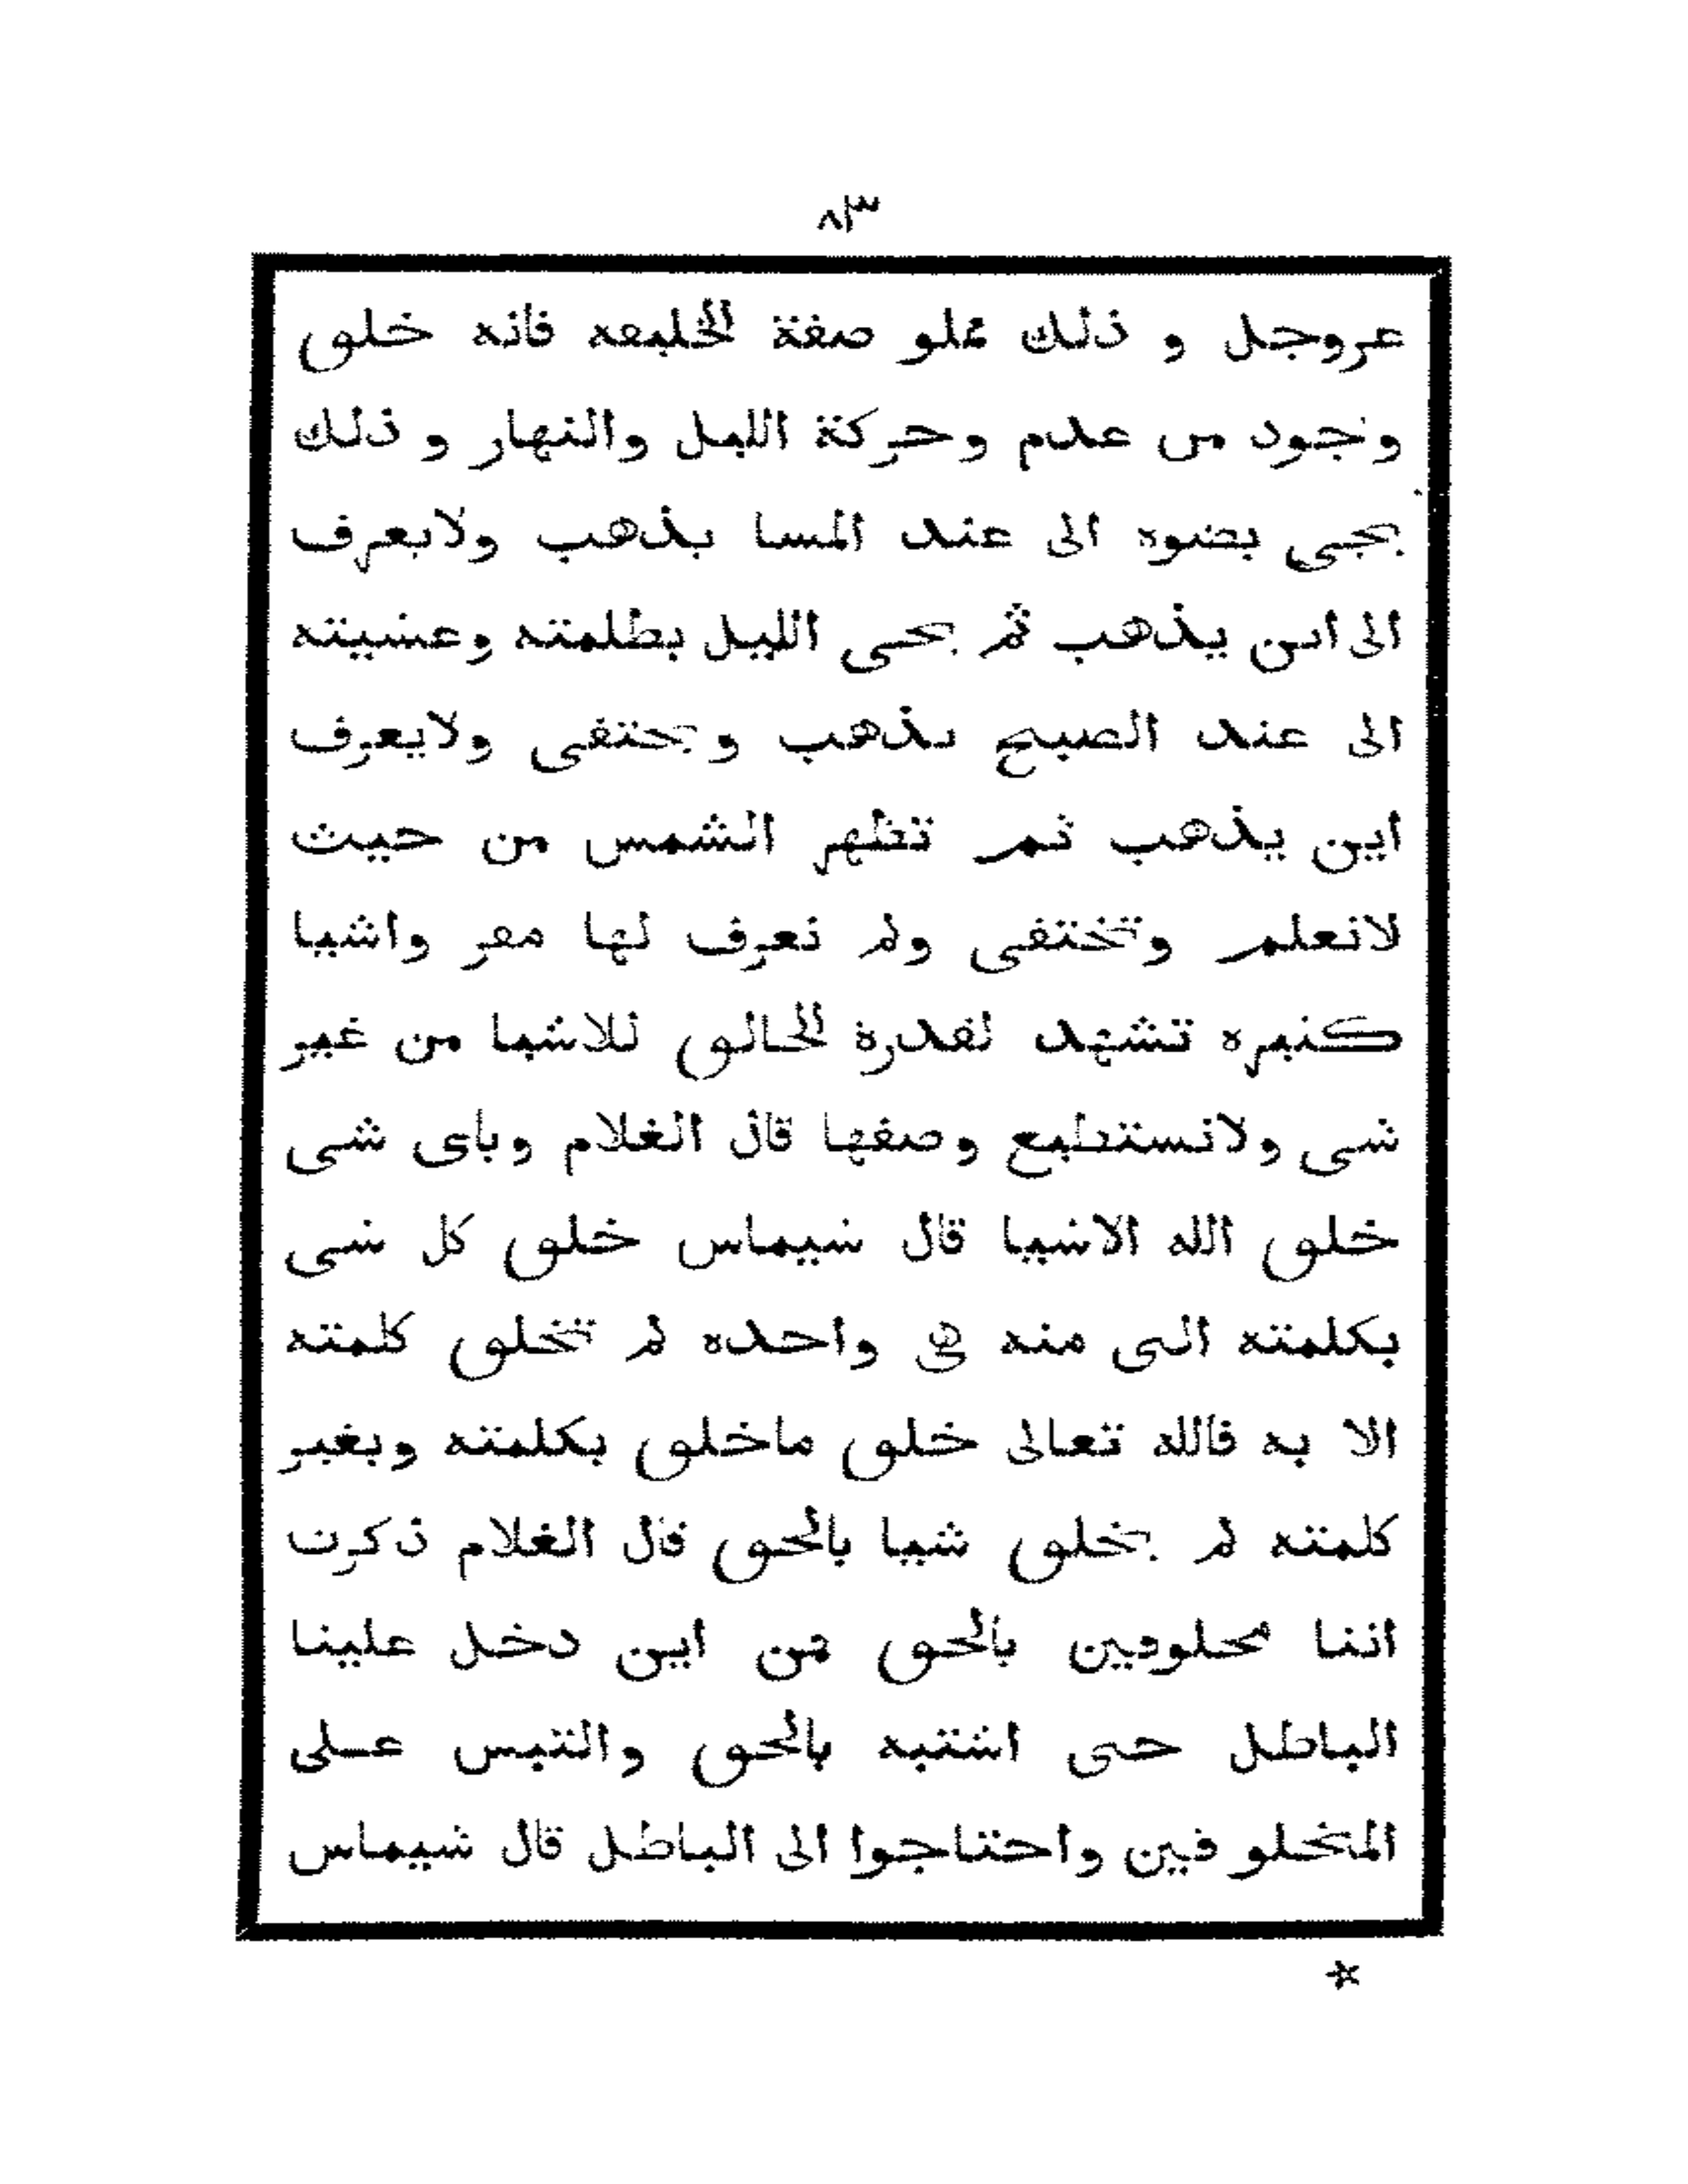 ٨٣
عروجل و ذلك علو صفة الخليقه فانه خلق
وجود من عدم وحركة الليل والنهار و ذلك
يجى بضوه الى عند المسا يذهب ولايعرف
الى اين يذهب ثم يجى الليل بظلمته وعشيته
الى عند الصبح يذهب ويختفى ولايعرف
اين يذهب ثم تظهر الشمس من حيث
لانعلم وتختفى ولم نعرف لها مقر واشيا
كثيره تشهد لقدرة الخالق للاشيا من غير
شى ولانستطيع وصفها قال الغلام وباى شى
خلق الله الاشيا قال شيماس خلق كل شى
بكلمته التى منه هى واحده لم تخلق كلمته
الا به فالله تعالى خلق ماخلق بكلمته وبغير
كلمته لم يخلق شيا بالحق قال الغلام ذكرت
اننا مخلوقين بالحق من اين دخل علينا
الباطل حتى اشتبه بالحق والتبس على
المخلوقين واحتاجوا الى الباطل قال شيماس
*